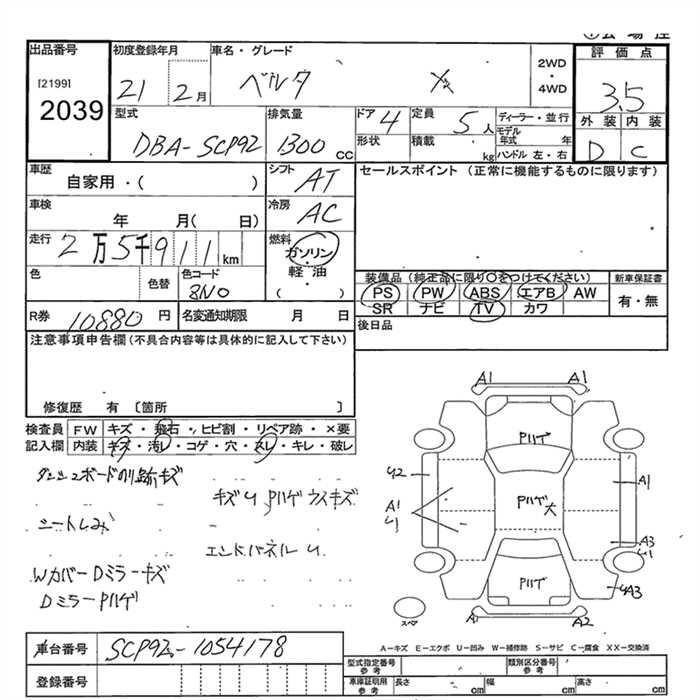 出品番号 初度登録年月 車名・グレード 評価点
[2199] 2039 21 2月 ベルタ X 2WD・4WD 3.5
外装 内装
D C
型式 排気量 ドア 定員 ディーラー・並行
DBA-SCP92 1300cc 4 5人 モデル年式 年
形状 積載 kg ハンドル 左・右
車歴 シフト セールスポイント (正常に機能するものに限ります)
自家用・( ) AT
車検 冷房
年 月( 日) AC
走行 燃料
2万5千911km ガソリン・軽油
( )
色 色替 色コード
8N0
装備品 (純正品に限り○をつけてください) 新車保証書
PS PW ABS エアB AW 有・無
SR ナビ TV カワ
R券 10880円 名変通知期限 月 日
後日品
注意事項申告欄(不具合内容等は具体的に記入して下さい)
修復歴 有 〔箇所 〕
検査員 FW キズ・飛石・ヒビ割・リペア跡・×要
記入欄 内装 キズ・汚レ・コゲ・穴・スレ・キレ・破レ
ダッシュボードのり跡キズ
キズU Pハゲ ウスキズ
シートしみ
エンドパネルU
Wカバー Dミラーキズ
Dミラー Pハゲ
A1 A1
Pハゲ
U2 A1 U1 Pハゲ大 A1
A3 U1
Pハゲ UA3
スペア A1 A2
A-キズ E-エクボ U-凹み W-補修跡 S-サビ C-腐食 XX-交換済
車台番号 SCP92-1054178
型式指定番号 参考 類別区分番号 参考
登録番号 車庫証明用 参考 長さ cm 幅 cm 高さ cm